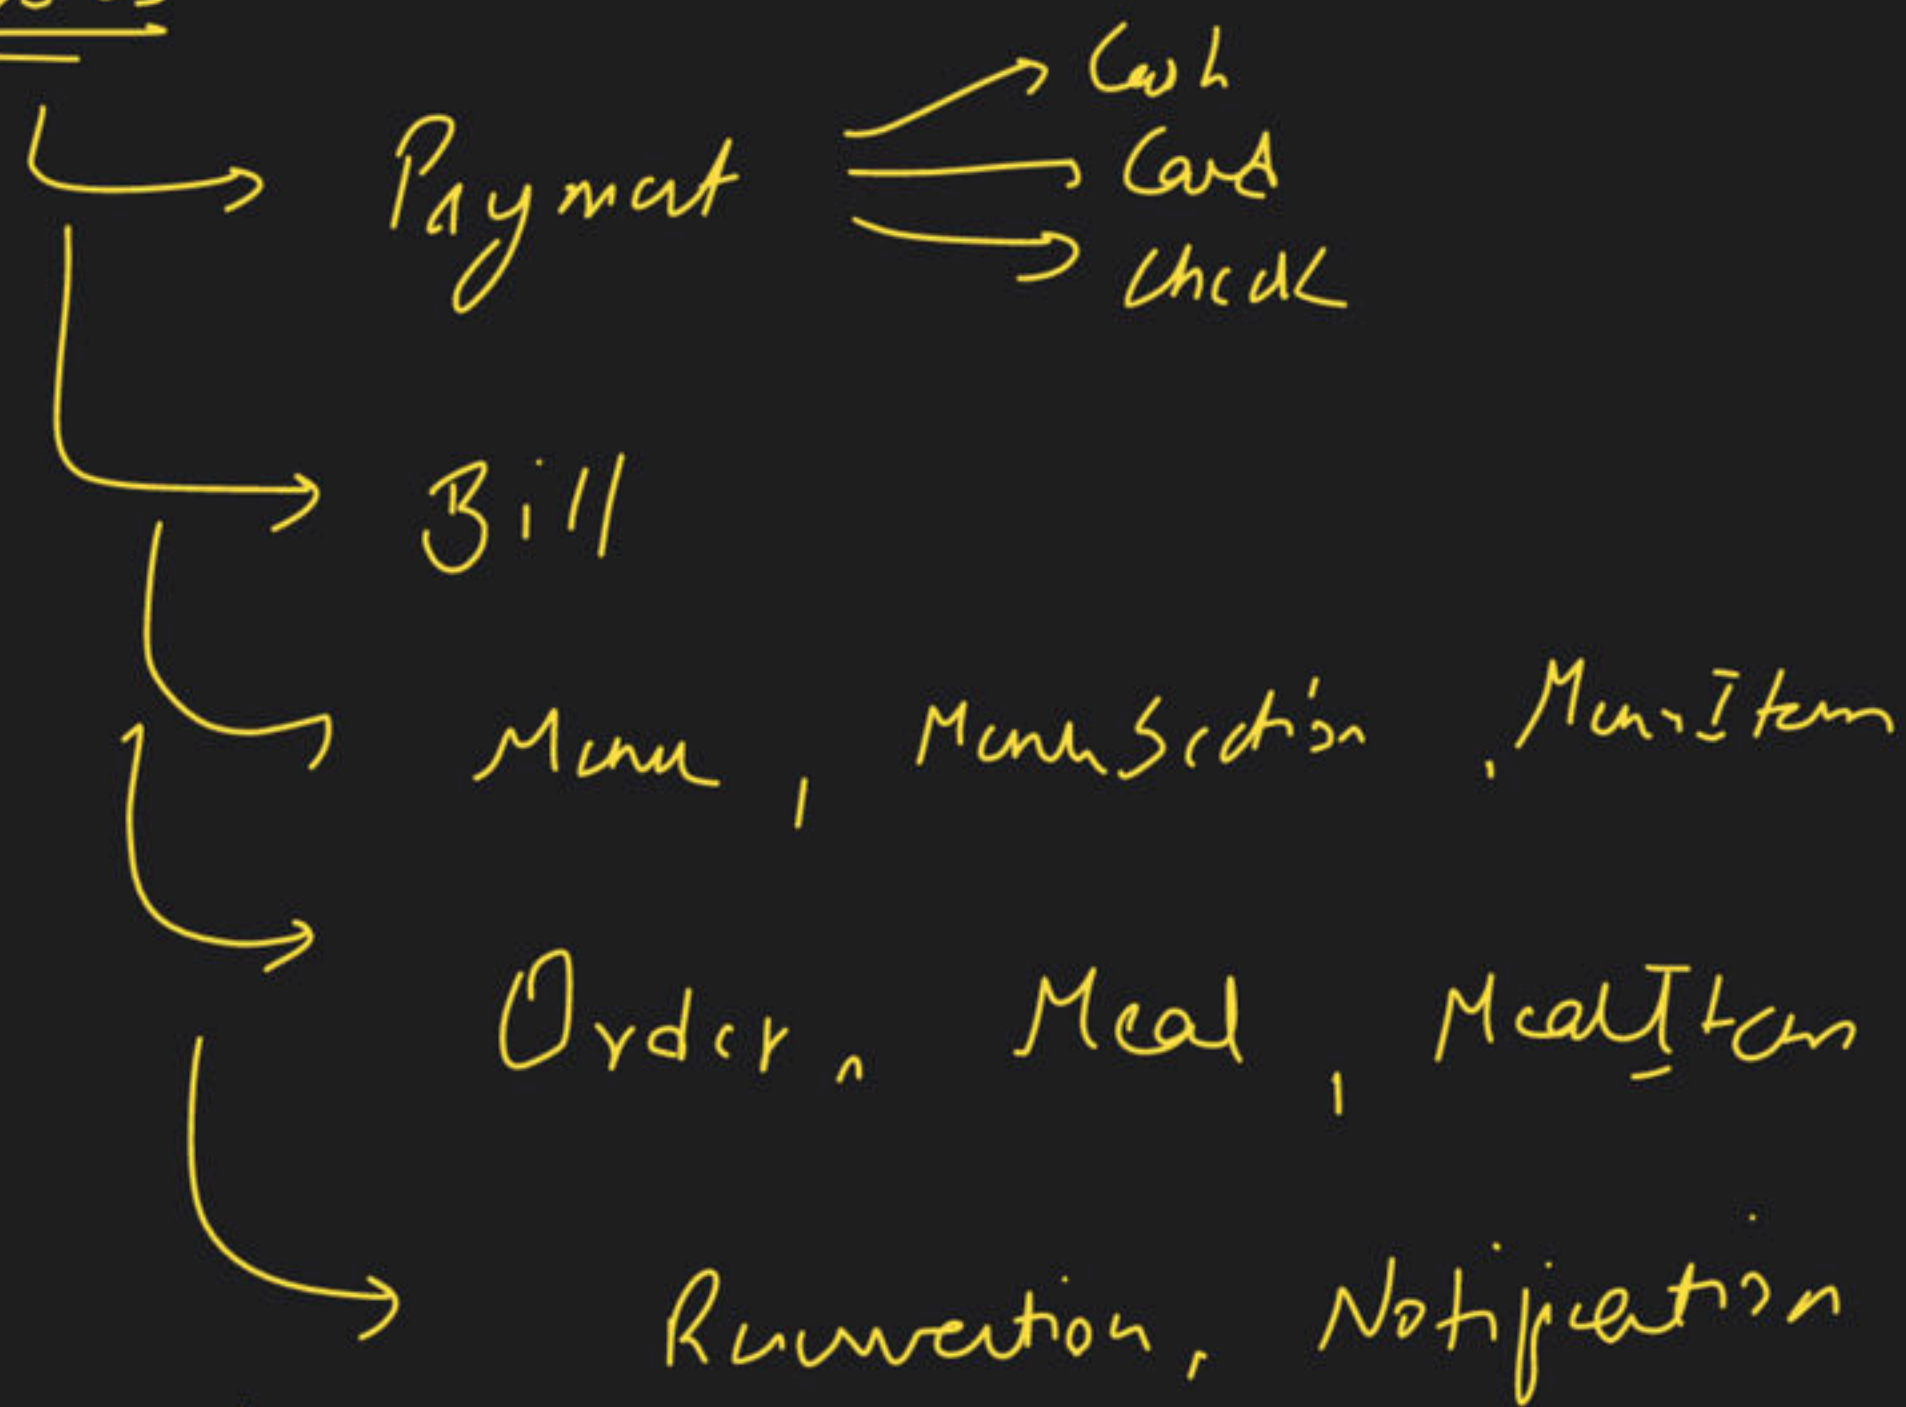 Cash
Payment Card
Check
Bill
Menu, MenuSection, MenuItem
Order, Meal, MealItem
Reservation, Notification